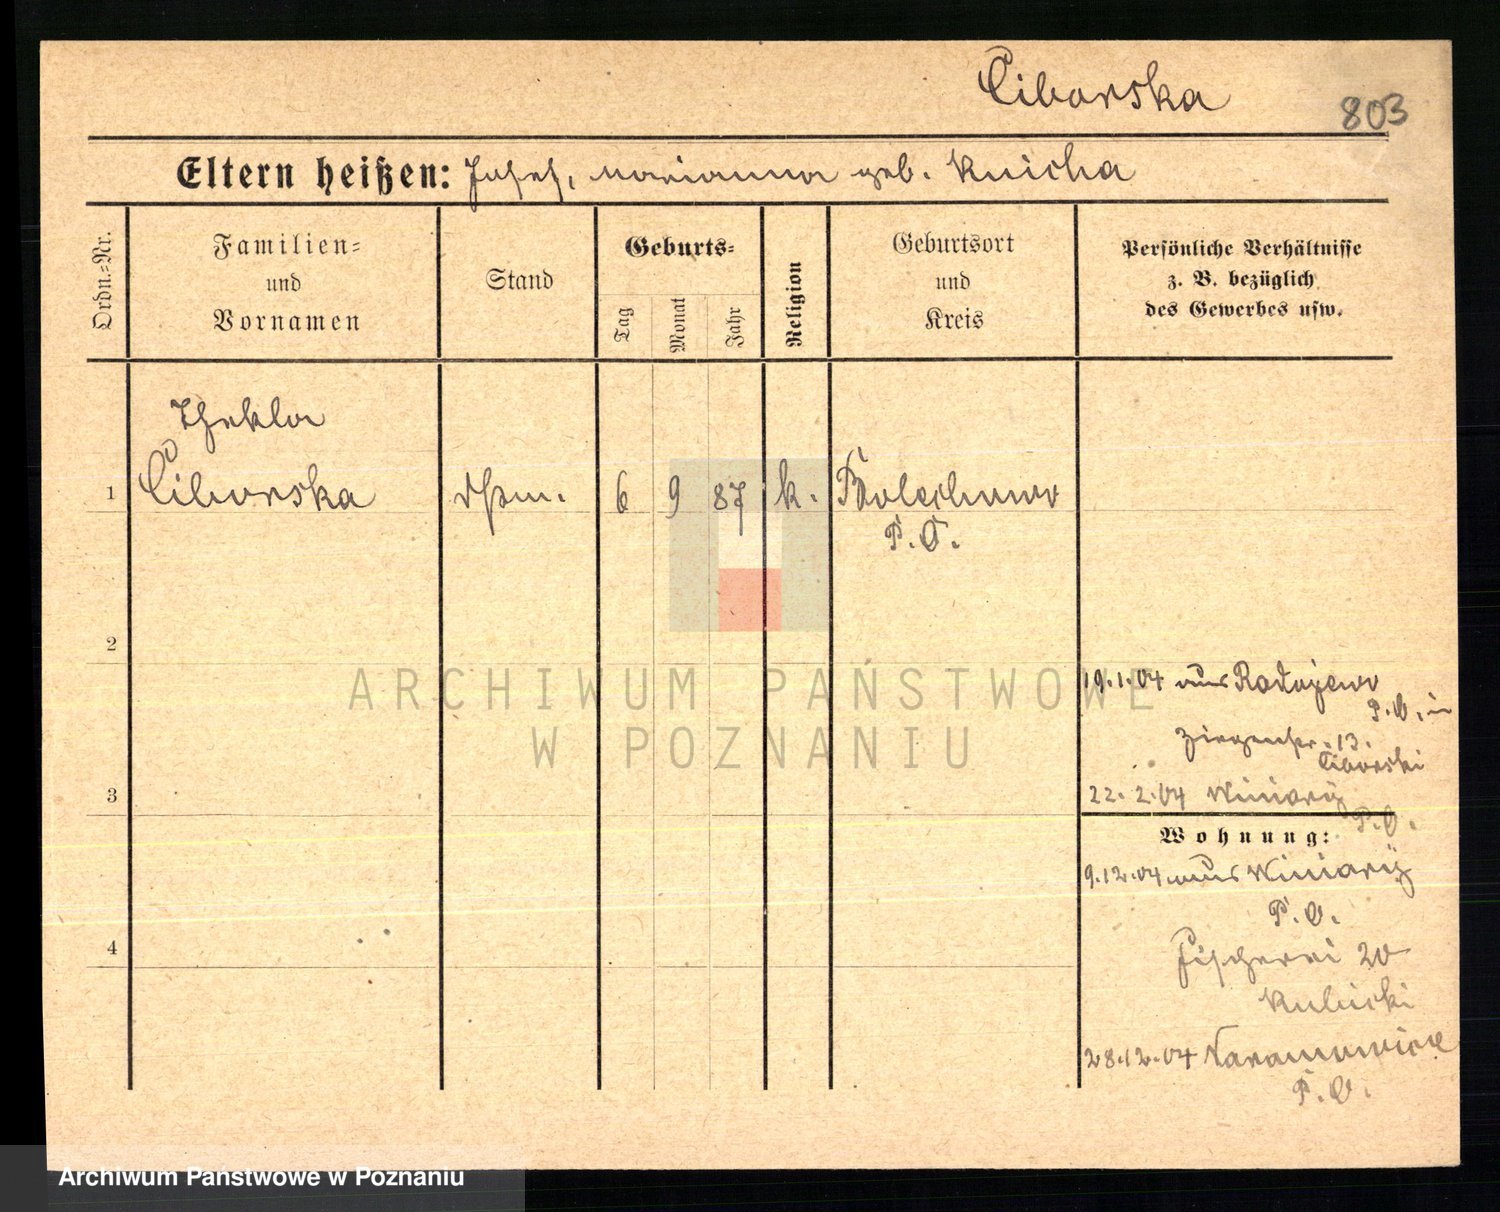 Ciborska
803
Eltern heißen: Josef, Marianna geb. Knicha
Ordn.-Nr.
Familien-
und
Vornamen
Stand
Geburts-
Tag
Monat
Jahr
Religion
Geburtsort
und
Kreis
Persönliche Verhältnisse
z. B. bezüglich
des Gewerbes usw.
Thekla
1 Ciborska 6 9 87 k. Bolechowo
P. O.
2
19.1.04 aus Radojewo
P. O. in
Ziegenstr. 13.
Ciborski
3
22. 2. 04 Winiary
P. O.
Wohnung:
9.12.04 aus Winiary
P. O.
4
Fischerei 20
Kubicki
28.12.04 Naramowice
P. O.
ARCHIWUM PAŃSTWOWE
W POZNANIU
Archiwum Państwowe w Poznaniu